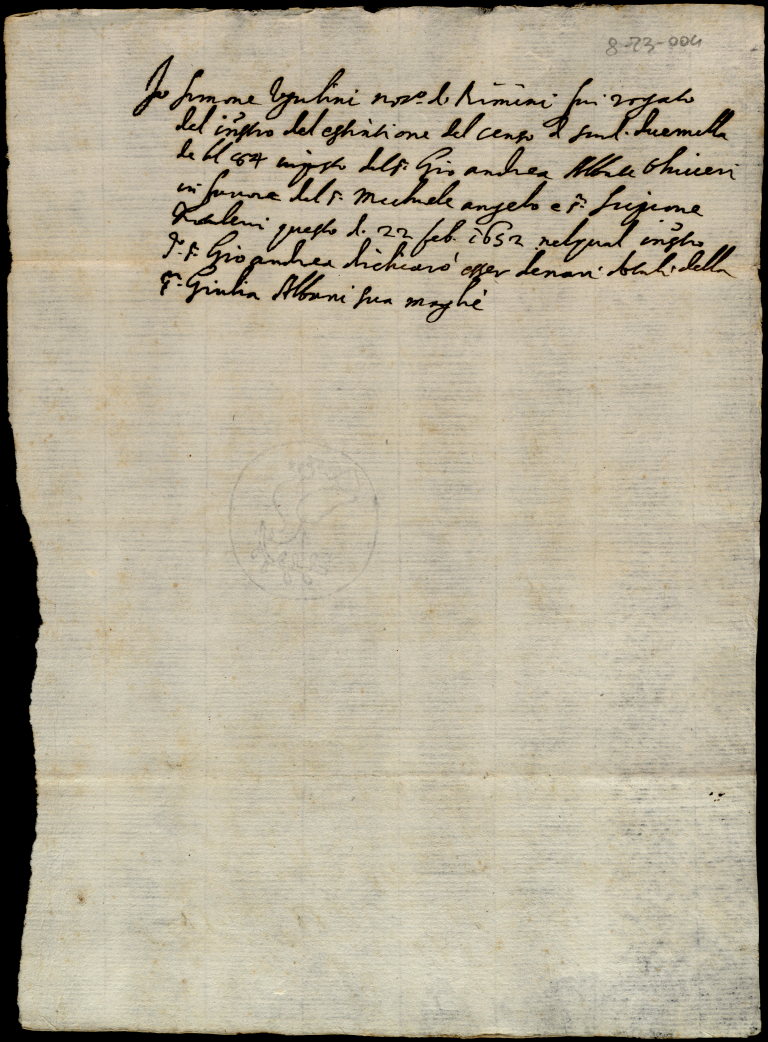 8-23-004
Io Simone Ugulini not.o di Rimini fui rogato
del instro del estintione del censo di scudi duemilla
de bl imposto dal s.r Gio andrea
in favore del s.r Michele angelo e s.r Scipione
questo dì 22 feb. 1652 nel qual instro
d.o s.r Gio andrea dichiarò esser denari dotali della
s.ra Giulia Albani sua moglie